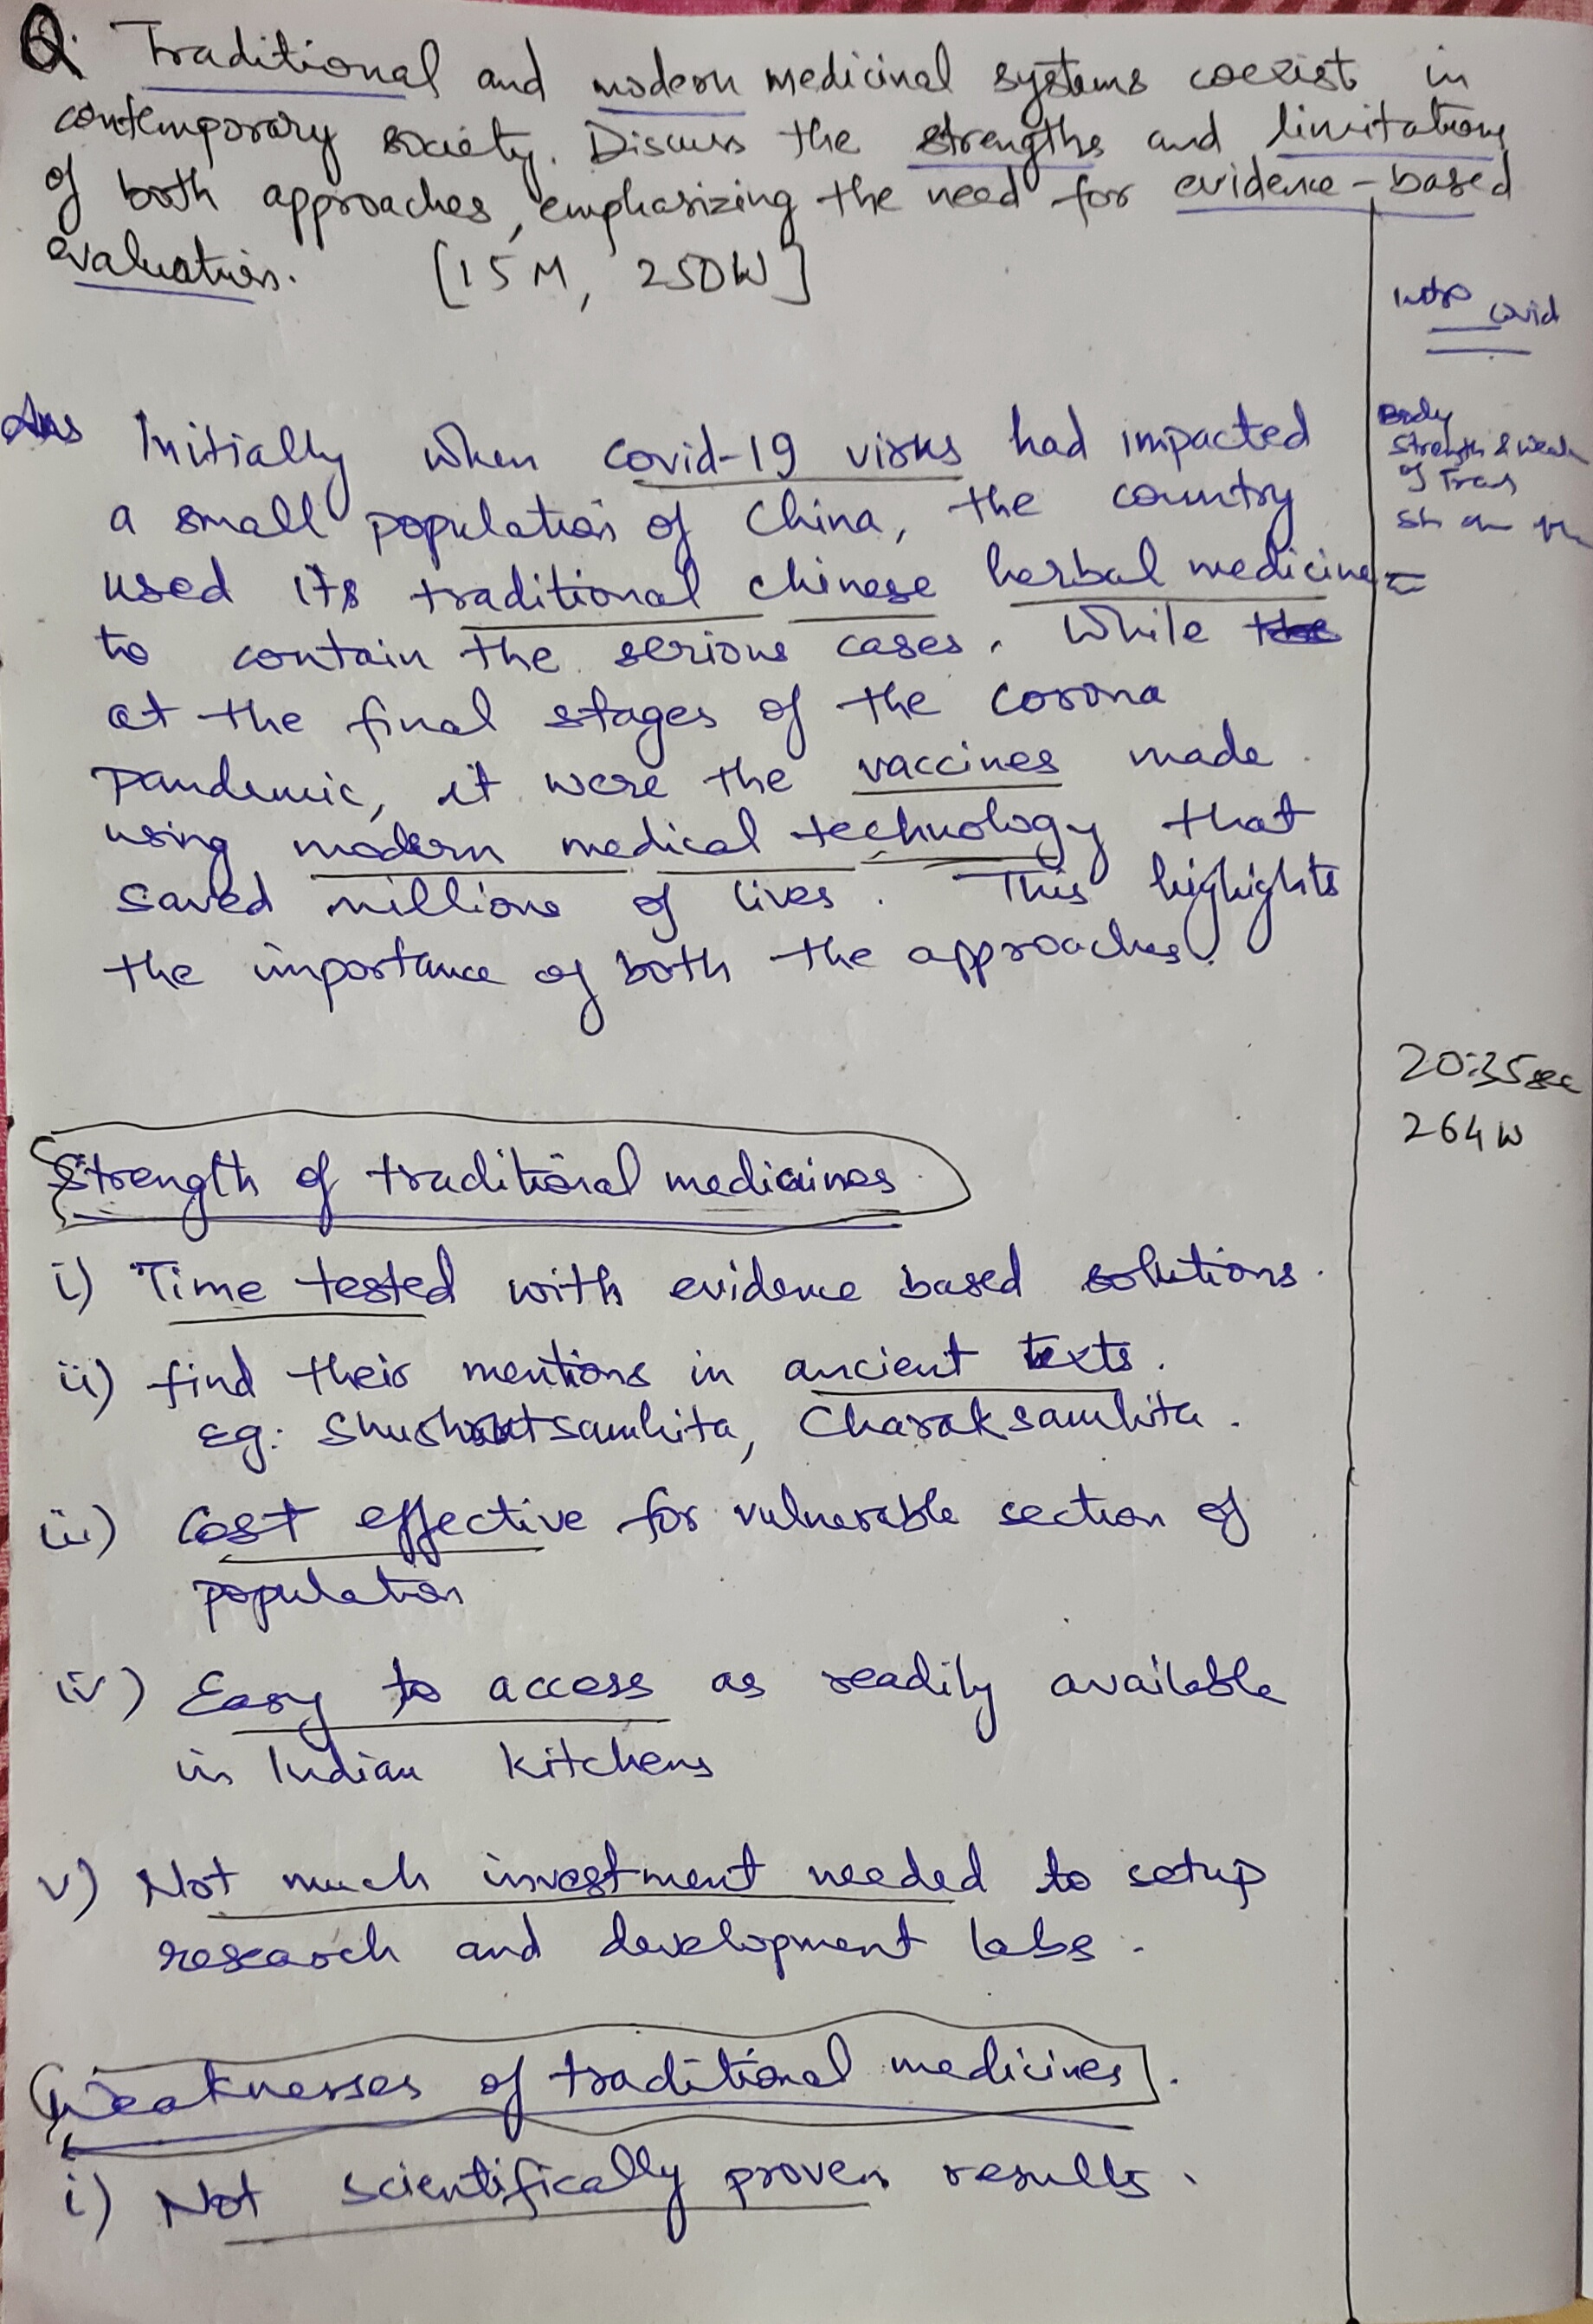 Q. Traditional and modern medicinal systems coexist in
contemporary society. Discuss the strengths and limitations
of both approaches, emphasizing the need for evidence-based
evaluation. [15M, 250W]
Intro covid
Ans Initially when covid-19 virus had impacted
a small population of China, the country
used its traditional chinese herbal medicine
to contain the serious cases. While the
at the final stages of the corona
pandemic, it were the vaccines made
using modern medical technology that
saved millions of lives. This highights
the importance of both the approaches.
Body
Strength & Weak
of Trad
20:35 sec
264 W
Strength of traditional medicines
i) Time tested with evidence based solutions.
ii) find their mentions in ancient texts.
Eg: Shushrutsamhita, Charaksamhita.
iii) Cost effective for vulnerable section of
population
iv) Easy to access as readily available
in Indian kitchens
v) Not much investment needed to setup
research and development labs.
Weaknesses of traditional medicines.
i) Not scientifically proven results.